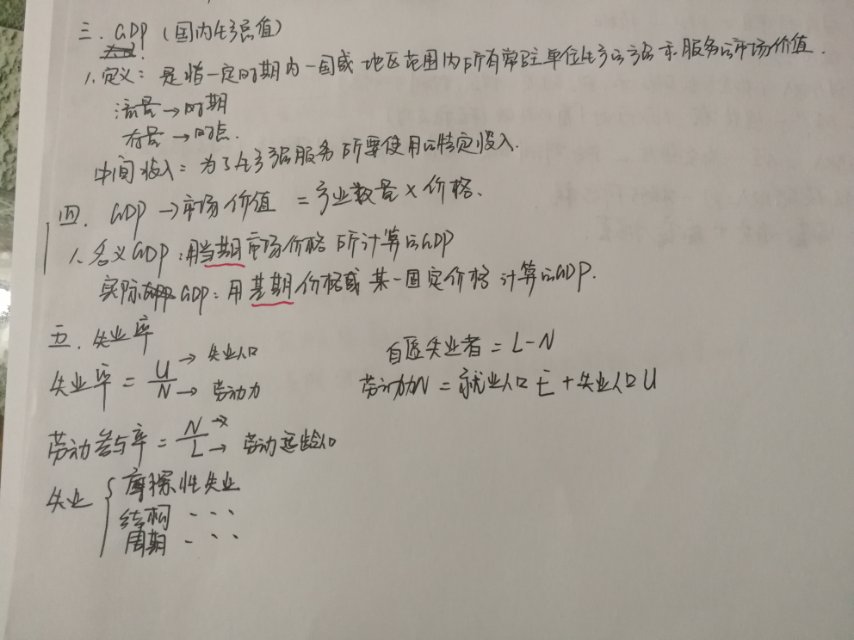 三. GDP (国内生产总值)
1. 定义: 是指一定时期内一国或地区范围内所有常驻单位生产的产品和服务的市场价值.
流量→时期
存量→时点.
中间投入: 为了生产产品服务所要使用的特定投入.
四. GDP →市场价值 = 产业数量 × 价格.
1. 名义GDP: 用当期市场价格所计算的GDP
实际GDP: 用基期价格或某一固定价格计算的GDP.
五. 失业率
失业率 = U/N → 失业人口 → 劳动力
自愿失业者 = L-N
劳动力N = 就业人口E + 失业人口U
劳动参与率 = N/L → → 劳动适龄人口
失业 { 摩擦性失业
结构 ···
周期 ···